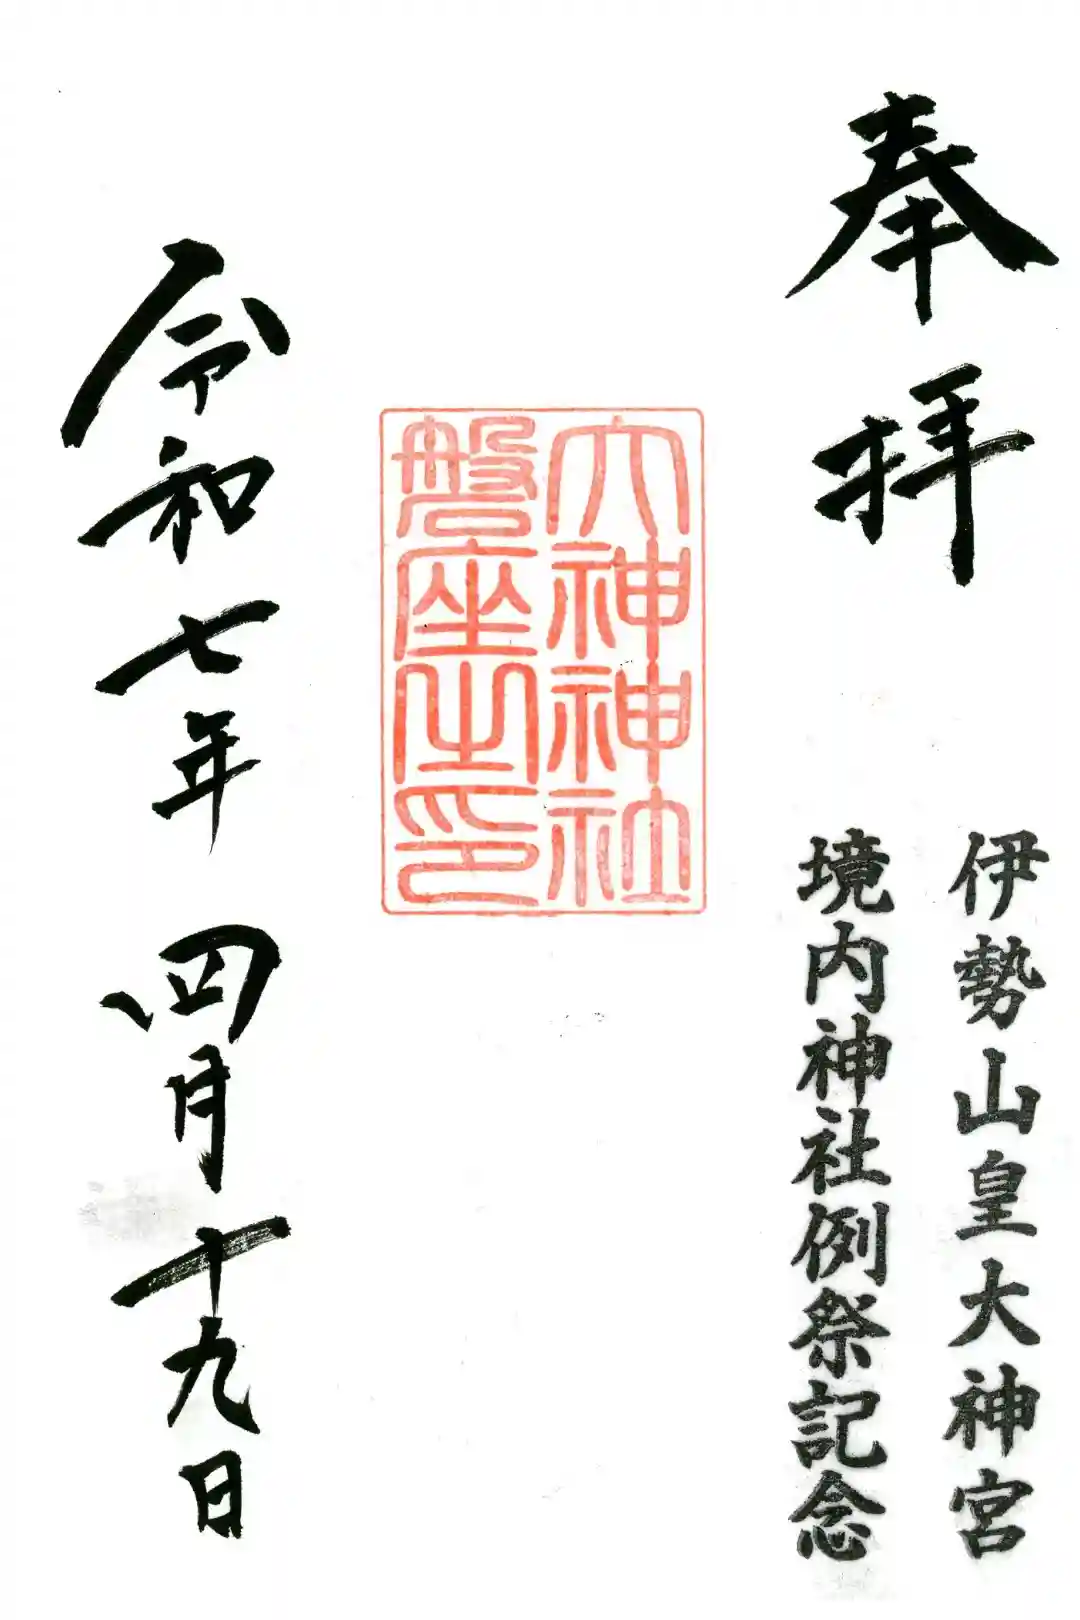 奉拝
伊勢山皇大神宮
境内神社例祭記念
大神神社
磐座之印
令和七年 四月十九日